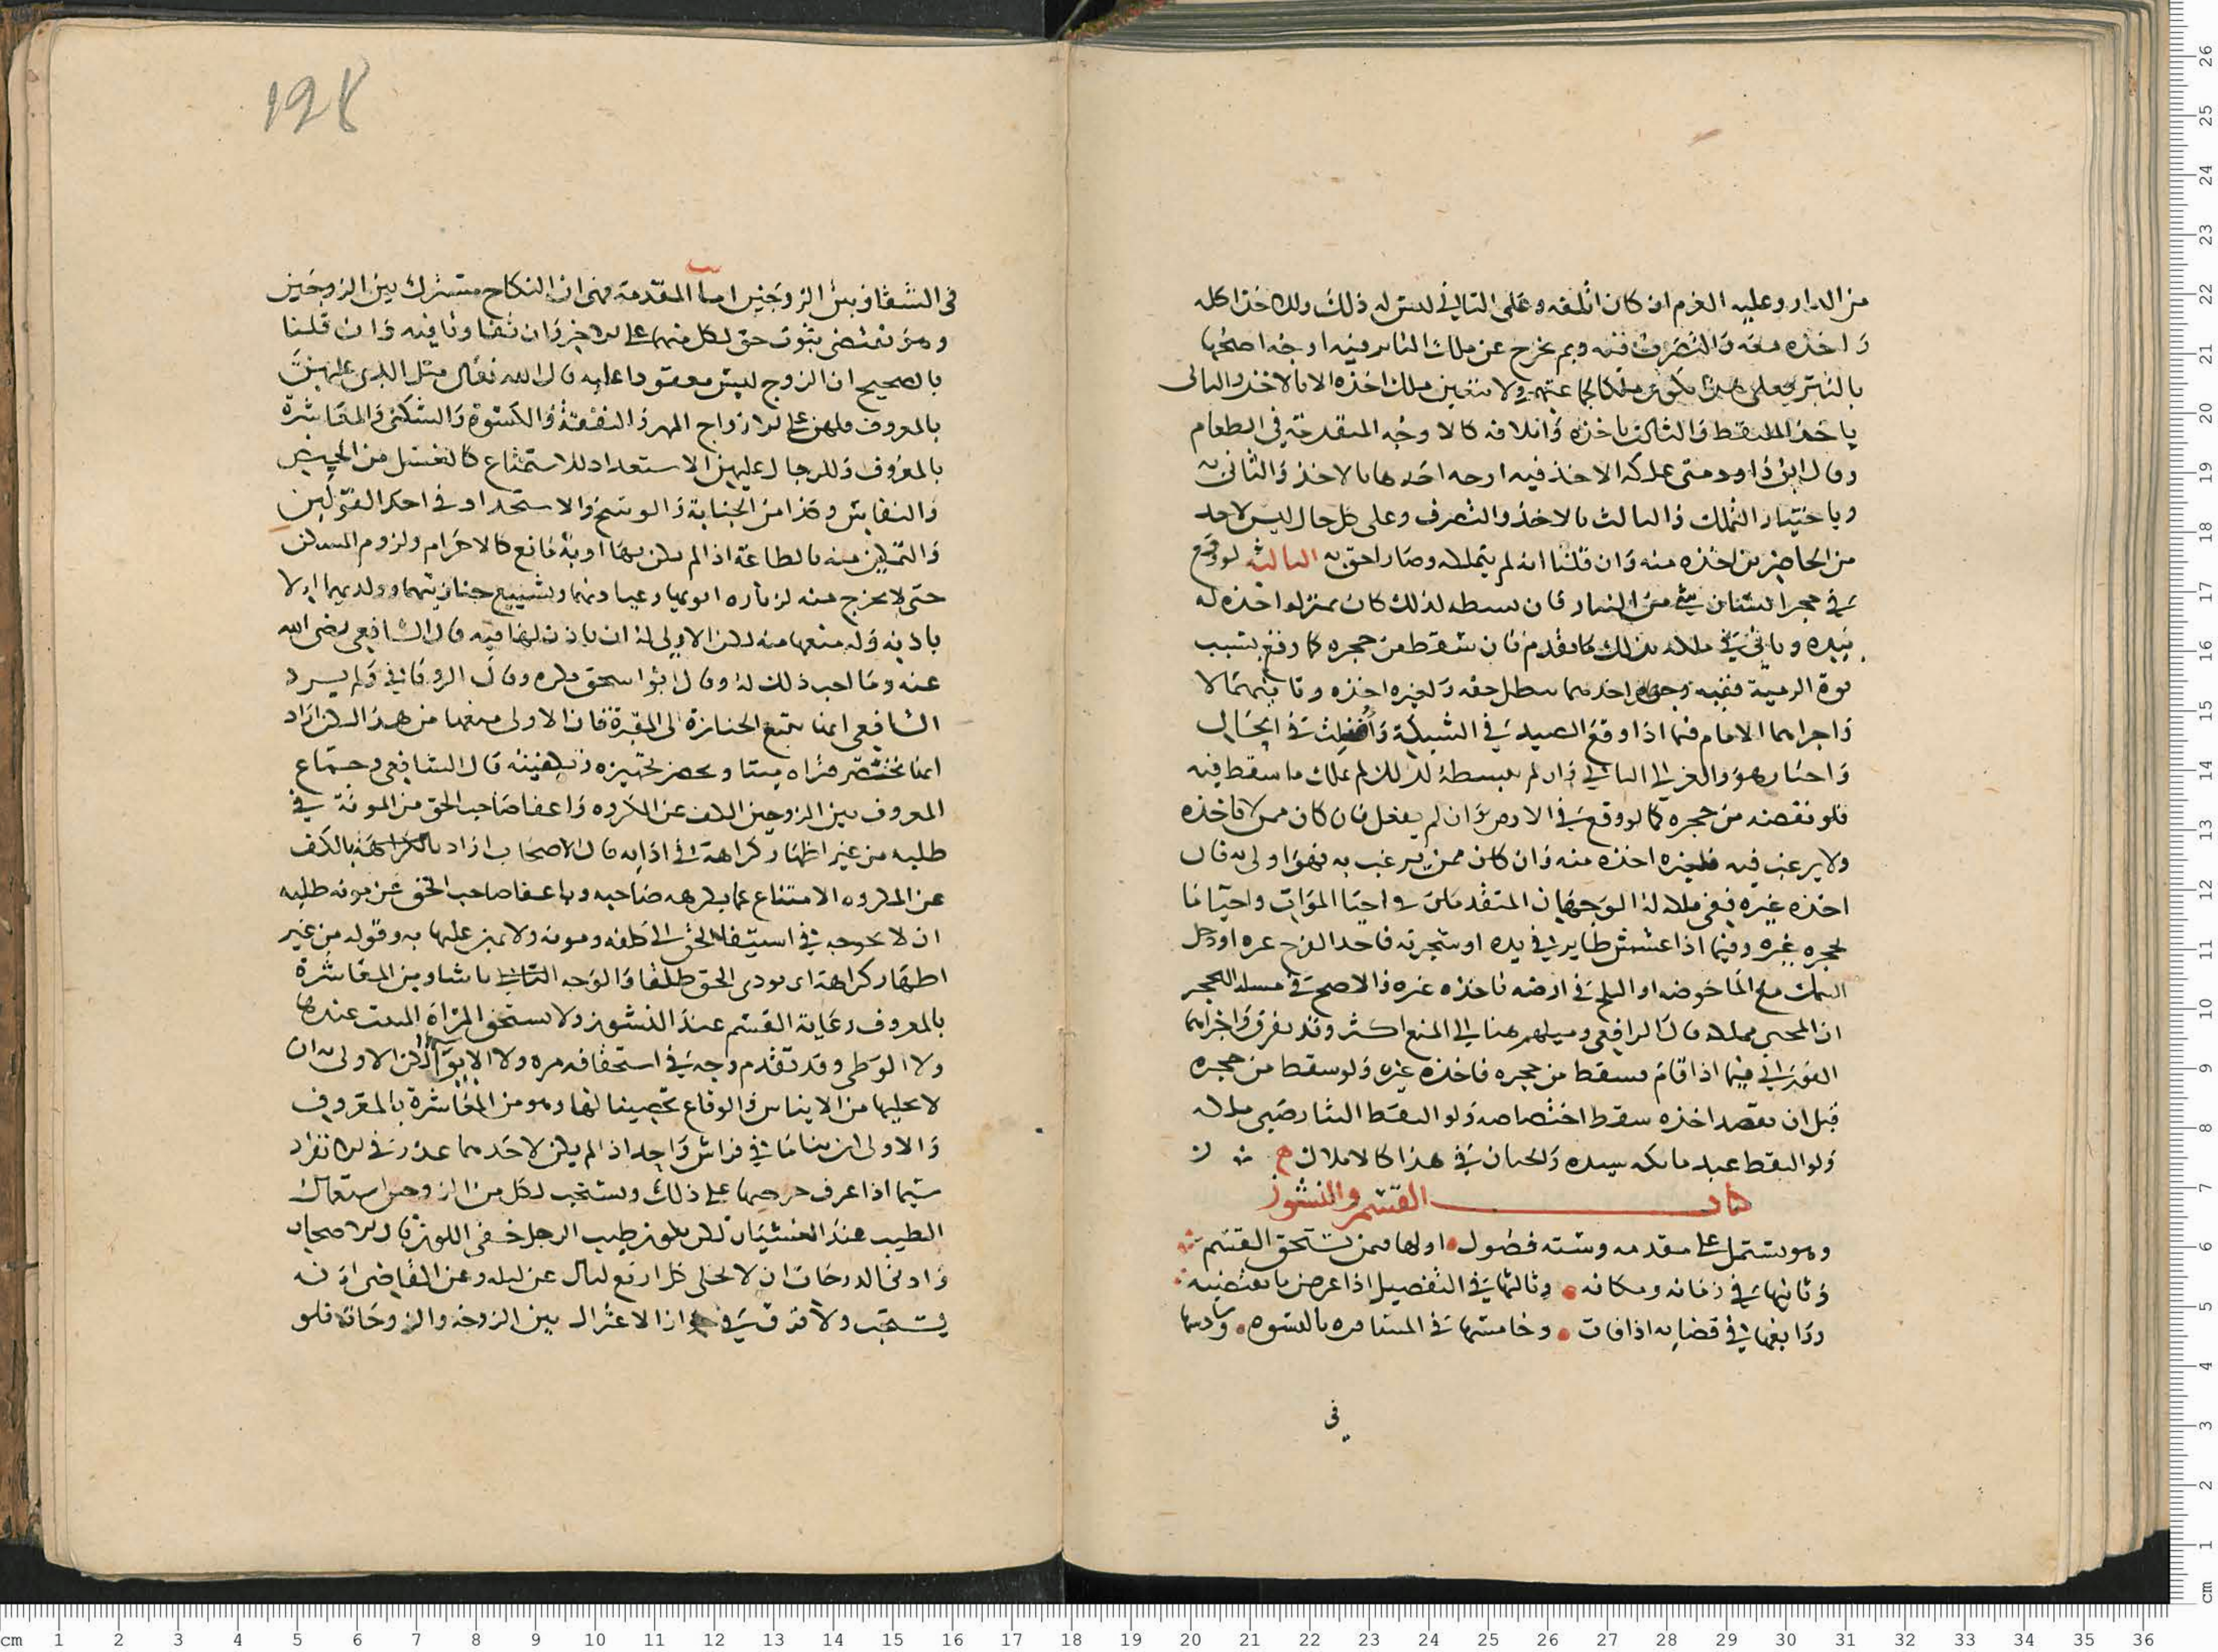 من الدار وعليه الغرم ان كان اتلفه وعلى الثاني ليس له ذلك وله اخذ اكله
واخذه معه والتصرف فيه وبم يخرج عن ملك الناثر فيه اوجه اصحها
ياخذ الملتقط والثالث باخذه واتلافه كالاوجه المتقدمة في الطعام
وقال ابن داود متى علكه الاخذ فيه اوجه احدها بالاخذ والثاني به
وباختيار التملك والثالث بالاخذ والتصرف وعلى كل حال ليس لاحد
من الحاضرين اخذه منه وان قلنا انه لم يتملك وصار احق به الثالثة لو وقع
في حجر انسان شي من النثار فان بسطه لذلك كان بمنزلة اخذه له
بيده وياتي في ملكه بذلك ما تقدم فان سقط من حجره كا رفع بسبب
قوة الرمية ففيه وجهان احدهما يبطل حقه ولغيره اخذه وثانيهما لا
واجراهما الامام فيما اذا وقع الصيد في الشبكة وافلت في الحال
واختار هو والغزالي الثاني وان لم يبسطه لذلك لم يملك ما سقط فيه
فلو نفضه من حجره كما لو وقع في الارض وان لم يفعل فان كان ممن لا ياخذه
ولا يرغب فيه فلغيره اخذه منه وان كان ممن يرغب به فهو اولى به فان
اخذه غيره ففي ملكه له الوجهان المتقدمان في احيا الموات واحيا ما
تحجره غيره وفيما اذا عشش طاير في يده او شجرته فاخذ الفرخ غيره او دخل
السمك مع الما حوضه او الثلج في ارضه فاخذه غيره والاصح في مسلة التحجر
ان المحيي يملك قال الرافعي وميلهم هنا الى المنع اكثر وقد يفرق واجراهما
الفوراني فيما اذا قام فسقط من حجره فاخذه غيره ولو سقط من حجره
قبل ان يقصد اخذه سقط اختصاصه ولو التقط النثار صبي ملكه
ولو التقط عبد ملكه سيده والختان في هذا كالاملاك
كتاب القسم والنشوز
وهو يشتمل على مقدمه وسته فصول اولها فيمن يستحق القسم
وثانيها في زمانه ومكانه وثالثها في التفضيل اذا عرض ما يقتضيه
ورابعها في قضايه اذا فات وخامسها في المسافره بالنسوه وسادسها
في
198
في الشقاق بين الزوجين اما المقدمة فهي ان النكاح مشترك بين الزوجين
وهو يقتضي ثبوت حق لكل منهما على الاخر وان تفاوتا فيه وان قلنا
بالصحيح ان الزوج ليس معقودا عليه قال الله تعالى مثل الذي عليهن
بالمعروف فلهن على الازواج المهر والنفقة والكسوة والسكنى والمعاشرة
بالمعروف وللرجال عليهن الاستعداد للاستمتاع كالغسل من الحيض
والنفاس وكذا من الجنابة والوسخ والاستحداد في احد القولين
والتمكين منه بالطاعة اذا لم يكن بها او به مانع كالاحرام ولزوم المسكن
حتى لا يخرج منه لزياره ابويها وعيادتهما وتشييع جنازتهما وولديهما الا
باذنه وله منعها منه لكن الاولى له ان ياذن لها فيه قال الشافعي رضي الله
عنه وما احب ذلك له وقال ابو اسحق يكره وقال الروياني ولم يرد
الشافعي انها تتبع الجنازة الى المقبرة فان الاولى منعها من هذا لكن اراد
انها تحتضر فتراه ميتا وتحضر تجهيزه وتكفينه قال الشافعي وجماع
المعروف بين الزوجين الكف عن المكروه واعفا صاحب الحق من المونة في
طلبه من غير اظهار كراهة في ادايه قال الاصحاب اراد بالكف
عن المكروه الامتناع عما يكرهه صاحبه وباعفا صاحب الحق عن مونه طلبه
ان لا يحوجه في استيفا الحق الى كلفه ومونه ولا يمن عليها به وقوله من غير
اظهار كراهة اي يودي الحق طلقا والوجه باشا ومن المعاشرة
بالمعروف رعاية القسم عند النشوز ولا يستحق المراة المبيت عندها
ولا الوطى وقد تقدم وجه في استحقاقه مره ولا الايوا لكن الاولى به ان
لا يخليها من الايناس والوقاع تحصينا لها وهو من المعاشرة بالمعروف
والاولى ان يناما في فراش واحد اذا لم يكن لاحدهما عذر في الانفراد
سيما اذا عرف حرصها على ذلك ويستحب لكل من الزوجين استعمال
الطيب عند الغشيان لكن يكون طيب الرجل خفي اللون قال الاصحاب
وادنى الدرجات ان لا يخلي كل اربع ليال عن ليله وعن القاضي انه
يستحب ولا فرق في جواز الاعتزال بين الزوجة والزوجات فلو